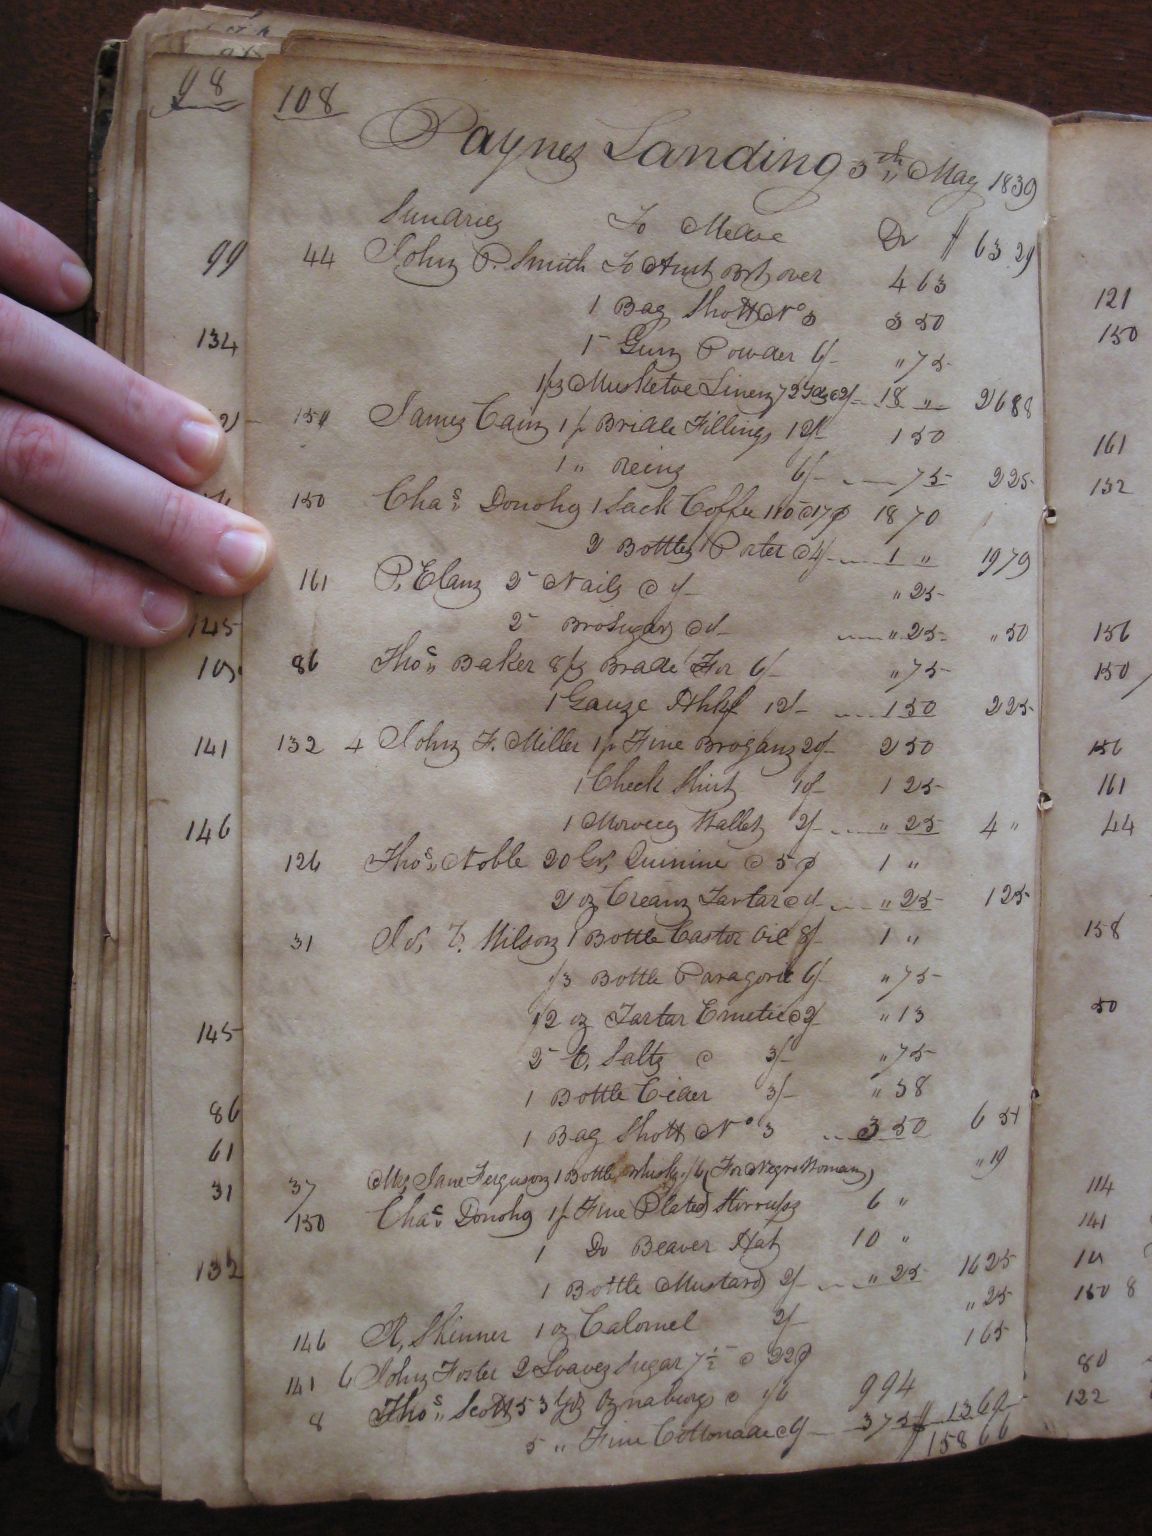 98
108
Paynes Landing 3th May 1839
Sundries To Mdse Dr $ 63 29
99
44 John P. Smith To Amt Brt over 4 63
1 Bag Shott No 3 3 50
134
1 Gun Powder 6/- " 75
Musketoe Linen 72 Yds @ 2/- 18 " 26 88
James Cain 1 pr Bridle Fillings 12/- 1 50
1 " Reins 6/- 75 2 25
150 Chas. Donoho 1 Sack Coffee 110 @ 17¢ 18 70
2 Bottles Porter @ 4/- 1 " 19 79
161 P. Elam 2 Nails @ 1/- " 25
145
2 Bro Sugar @ 1/- " 25 " 50
105
86 Thos. Baker 8 Braid For 6/- " 75
1 Gauze Hhkf 12/- 1 50 2 25
141
132 4 John F. Miller 1 pr Fine Brogans 20/- 2 50
1 Check Shirt 10/- 1 25
146
1 Morocco Wallet 2/- " 25 4 "
126 Thos. Noble 20 Gr. Quinine @ 5¢ 1 "
2 oz Cream Tartar @ 1/- " 25 1 25
31 Wilson 1 Bottle Castor Oil 8/- 1 "
Bottle Paragoric 6/- " 75
1/2 oz Tartar Emetic @ 2/- " 13
145
2 E. Salts @ 3/- " 75
1 Bottle Cider 3/- " 38
86
1 Bag Shott No 3 3 50 6 51
61
37 Mrs Jane Ferguson 1 Bottle Whisky 1/6 (For Negro Woman) " 19
31
150 Chas. Donoho 1 pr Fine Plated Stirrups 6 "
1 Do Beaver Hat 10 "
132
1 Bottle Mustard 2/- " 25 16 25
146 A. Skinner 1 oz Calomel 2/- " 25
141 6 John Foster 2 Loaves Sugar 7 1/2 @ 22¢ 1 65
8 Thos. Scott 53 Yds Oznaburgs @ 1/6 9 94
5 " Fine Cottonade @ 6/- 3 75 13 69
$ 158 66
121
150
161
132
156
150
156
161
44
158
50
114
141
150 8
80
122